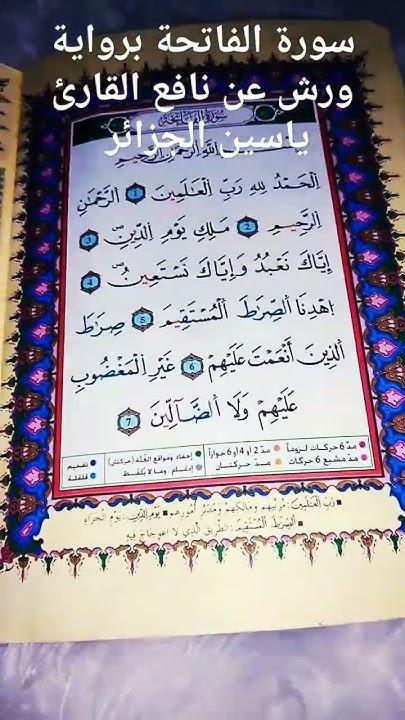 سورة الفاتحة برواية
ورش عن نافع القارئ
ياسين الجزائر
سُورَةُ الفَاتِحَةِ
اللَّهِ الرَّحْمَٰنِ الرَّحِيمِ
اِلْحَمْدُ لِلهِ رَبِّ اِلْعَٰلَمِينَ 1 اَلرَّحْمَٰنِ
اِلرَّحِيمِ 2 مَلِكِ يَوْمِ اِلدِّينِ 3
إِيَّاكَ نَعْبُدُ وَإِيَّاكَ نَسْتَعِينُ 4
اِهْدِنَا اَلصِّرَٰطَ اَلْمُسْتَقِيمَ 5 صِرَٰطَ
اَلذِينَ أَنْعَمْتَ عَلَيْهِمْ 6 غَيْرِ اِلْمَغْضُوبِ
عَلَيْهِمْ وَلَا اَلضَّآلِّينَ 7
مدّ 6 حركات لزوماً مدّ 2 أو 4 أو 6 جوازاً إخفاء ومواقع الغُنَّة (حركتان) تفخيم
مدّ مشبع 6 حركات مدّ حركتان إدغام، وما لا يُلفَظ قلقلة
رَبِّ الْعَٰلَمِينَ: مُرَبِّيهِم ومَالِكِهِم ومُدَبِّرِ أُمُورِهِم يَوْمِ الدِّينِ: يَوْمِ الجَزَاءِ
الصِّرَٰطَ الْمُسْتَقِيمَ: الطَّرِيقَ الَّذِي لَا اعْوِجَاجَ فِيهِ